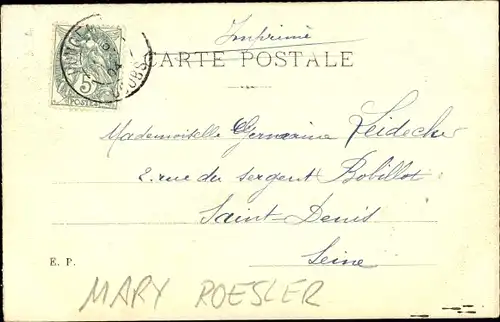 Imprimé
CARTE POSTALE
5c
POSTES
DOUBS
Mademoiselle Germaine
2. rue du sergent Bobillot
Saint-Denis
Seine
E. P.
MARY ROESLER